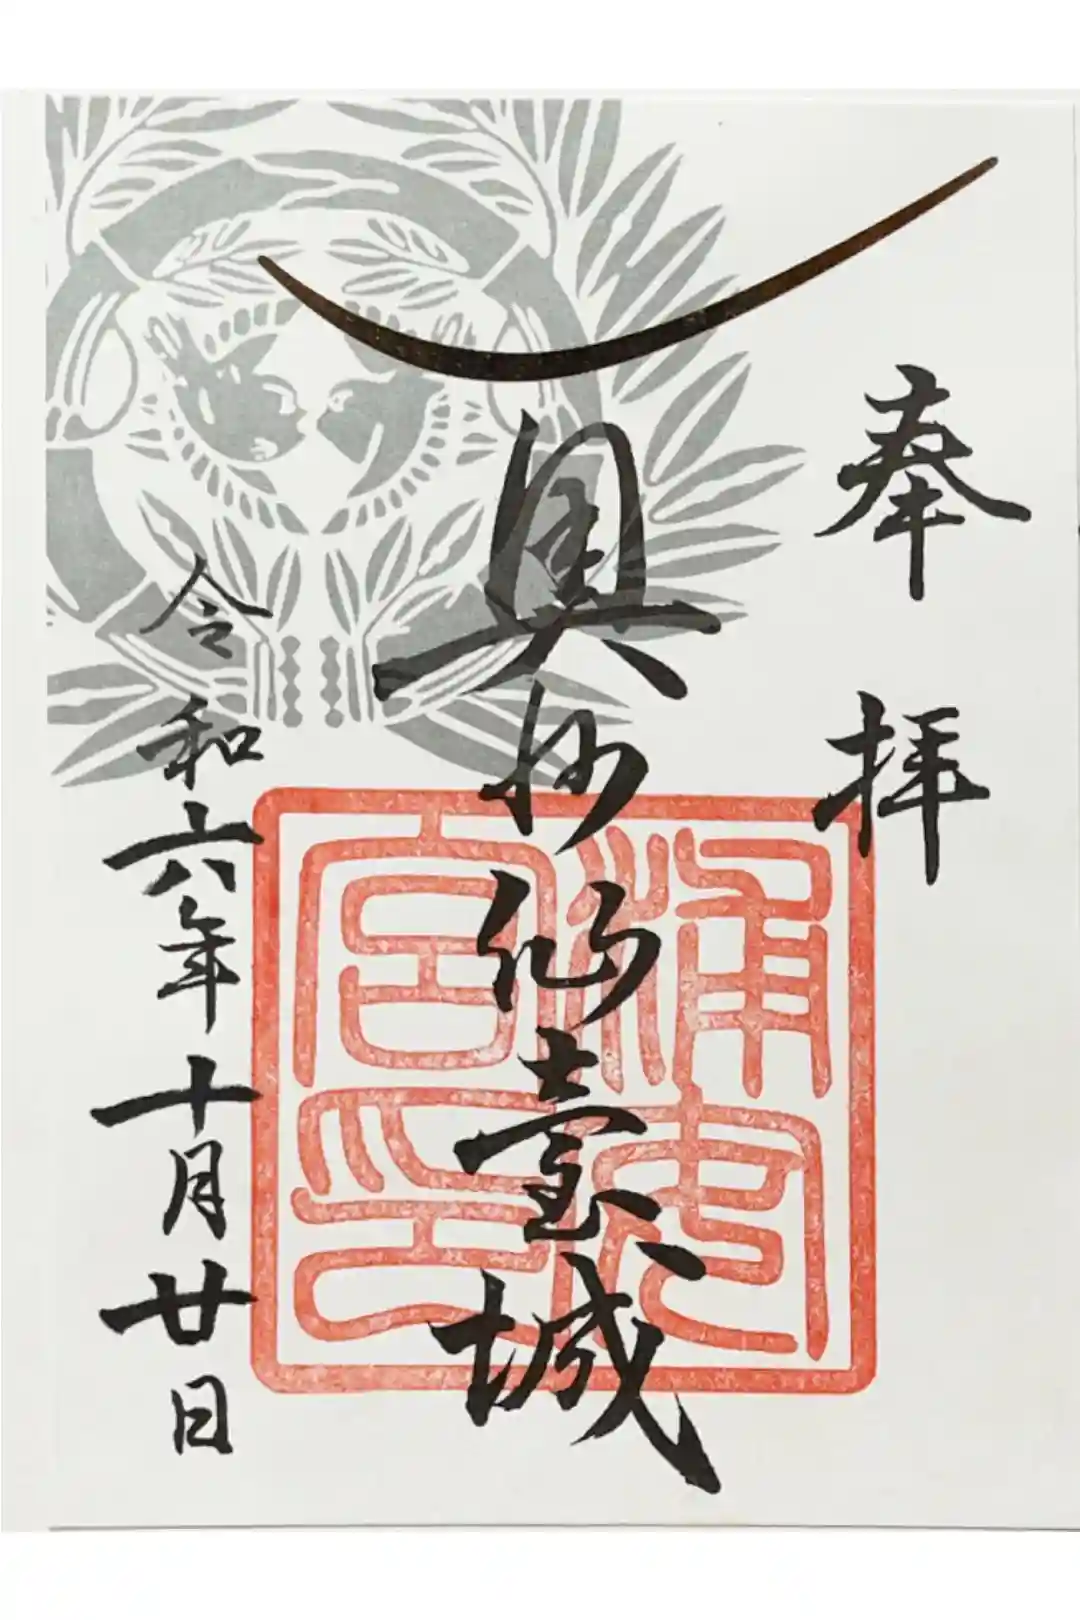 奉拝
奥州仙臺城
浦安
宮印
令和六年十月廿日